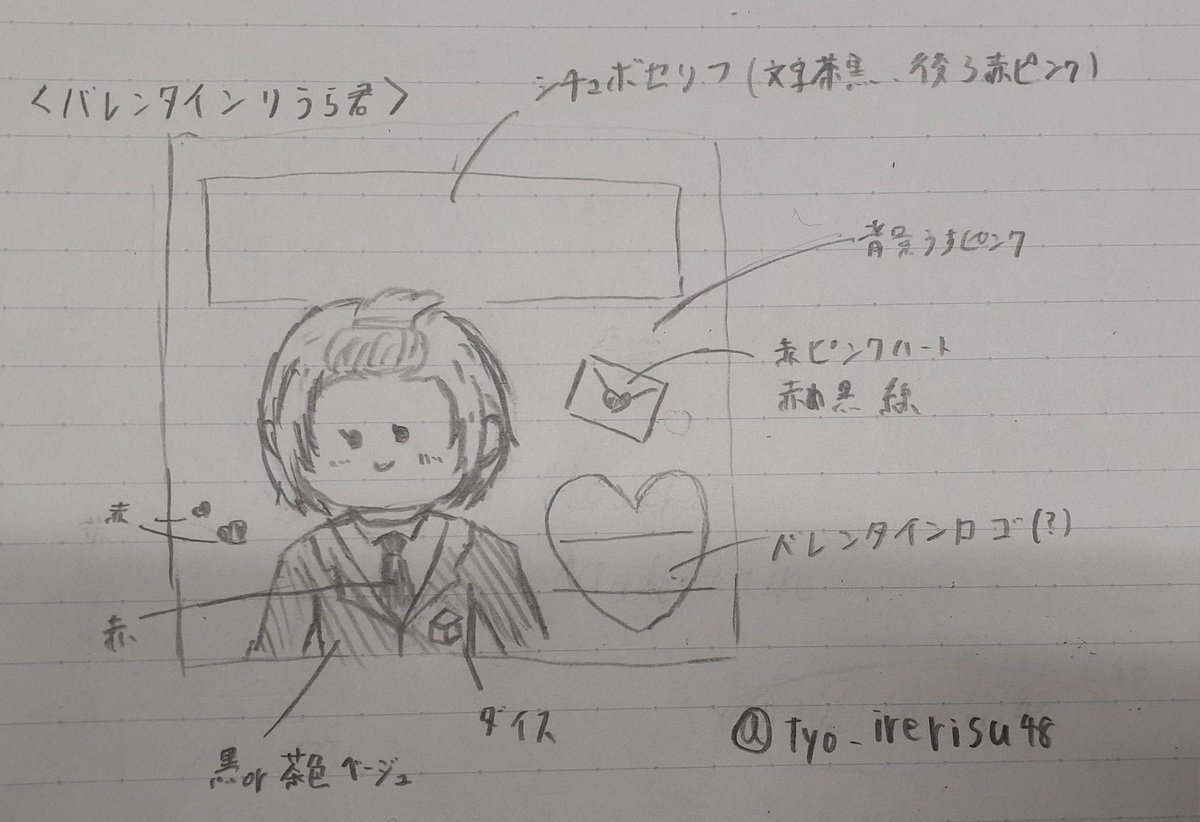 <バレンタインりうら君>
シチュボセリフ(文字茶黒、後ろ赤ピンク)
背景うすピンク
赤ピンクハート
赤or黒 線
バレンタインロゴ(?)
赤
赤
ダイス
黒or茶色ベージュ
@Tyo_irerisu48